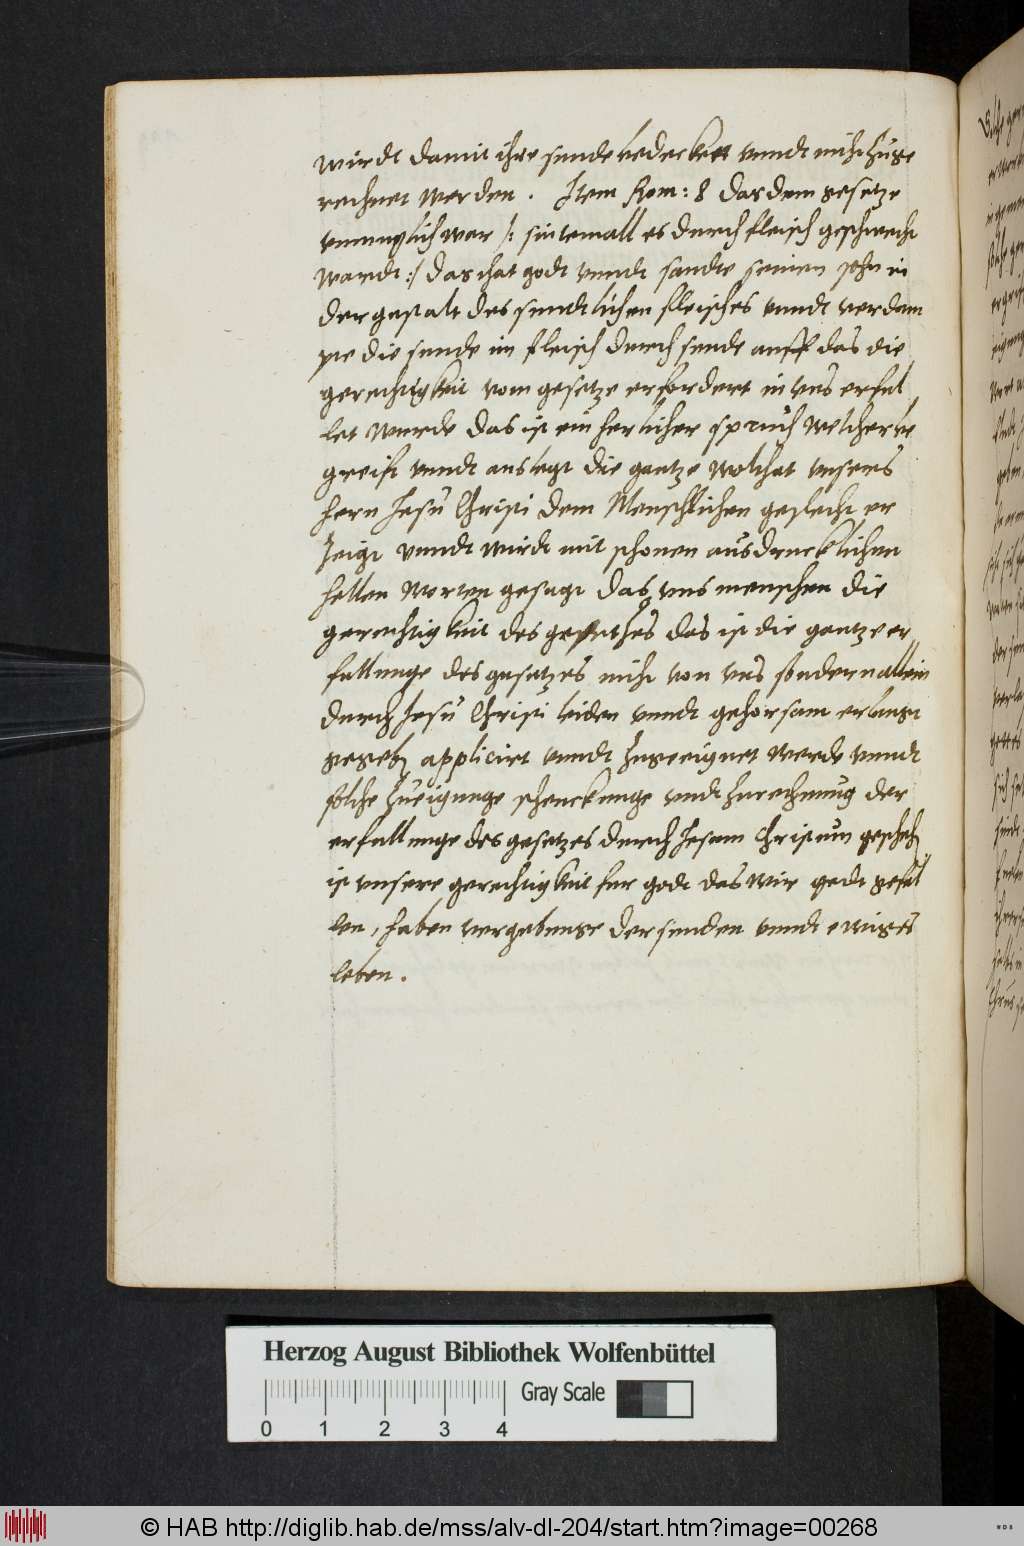 wirdt damit ihre sunde bedecktt vnndt nicht zuge
rechnet werden . Item Rom: 8 das dem gesetze
vnmuglich war /: sintemall es durch fleisch geschwecht
wardt :/ das that godt vnndt sandte seinen sohn in
der gestalt des sundtlichen fleisches vnndt verdam
pte die sunde im fleisch durch sunde auff das die
gerechtigkeit vom gesetze erfordert in vns erful
let wurde das ist ein herlicher spruch welcher be
greift vnndt auslegt die gantze wolthat vnsers
hern Jesu Christi dem Menschlichen geslecht er
zeigt vnndt wirdt mit schonen ausdrucklichen
hellen worten gesagt das vns menschen die
gerechtigkeit des gesethes das ist die gantze er
fullunge des gesetzes nicht von vns sondern allein
durch Jesu Christi leiden vnndt gehorsam erlangt
applicirt vnndt zugeeignet werde vnndt
solche zueignunge schenckunge vndt zurechnung der
erfullunge des gesetzes durch Jesum Christum geschehn
ist vnsere gerechtigkeit fur godt das wir godt gefal
len , haben vergebunge der sunden vnndt ewiges
leben .
Herzog August Bibliothek Wolfenbüttel
Gray Scale
0 1 2 3 4
© HAB http://diglib.hab.de/mss/alv-dl-204/start.htm?image=00268